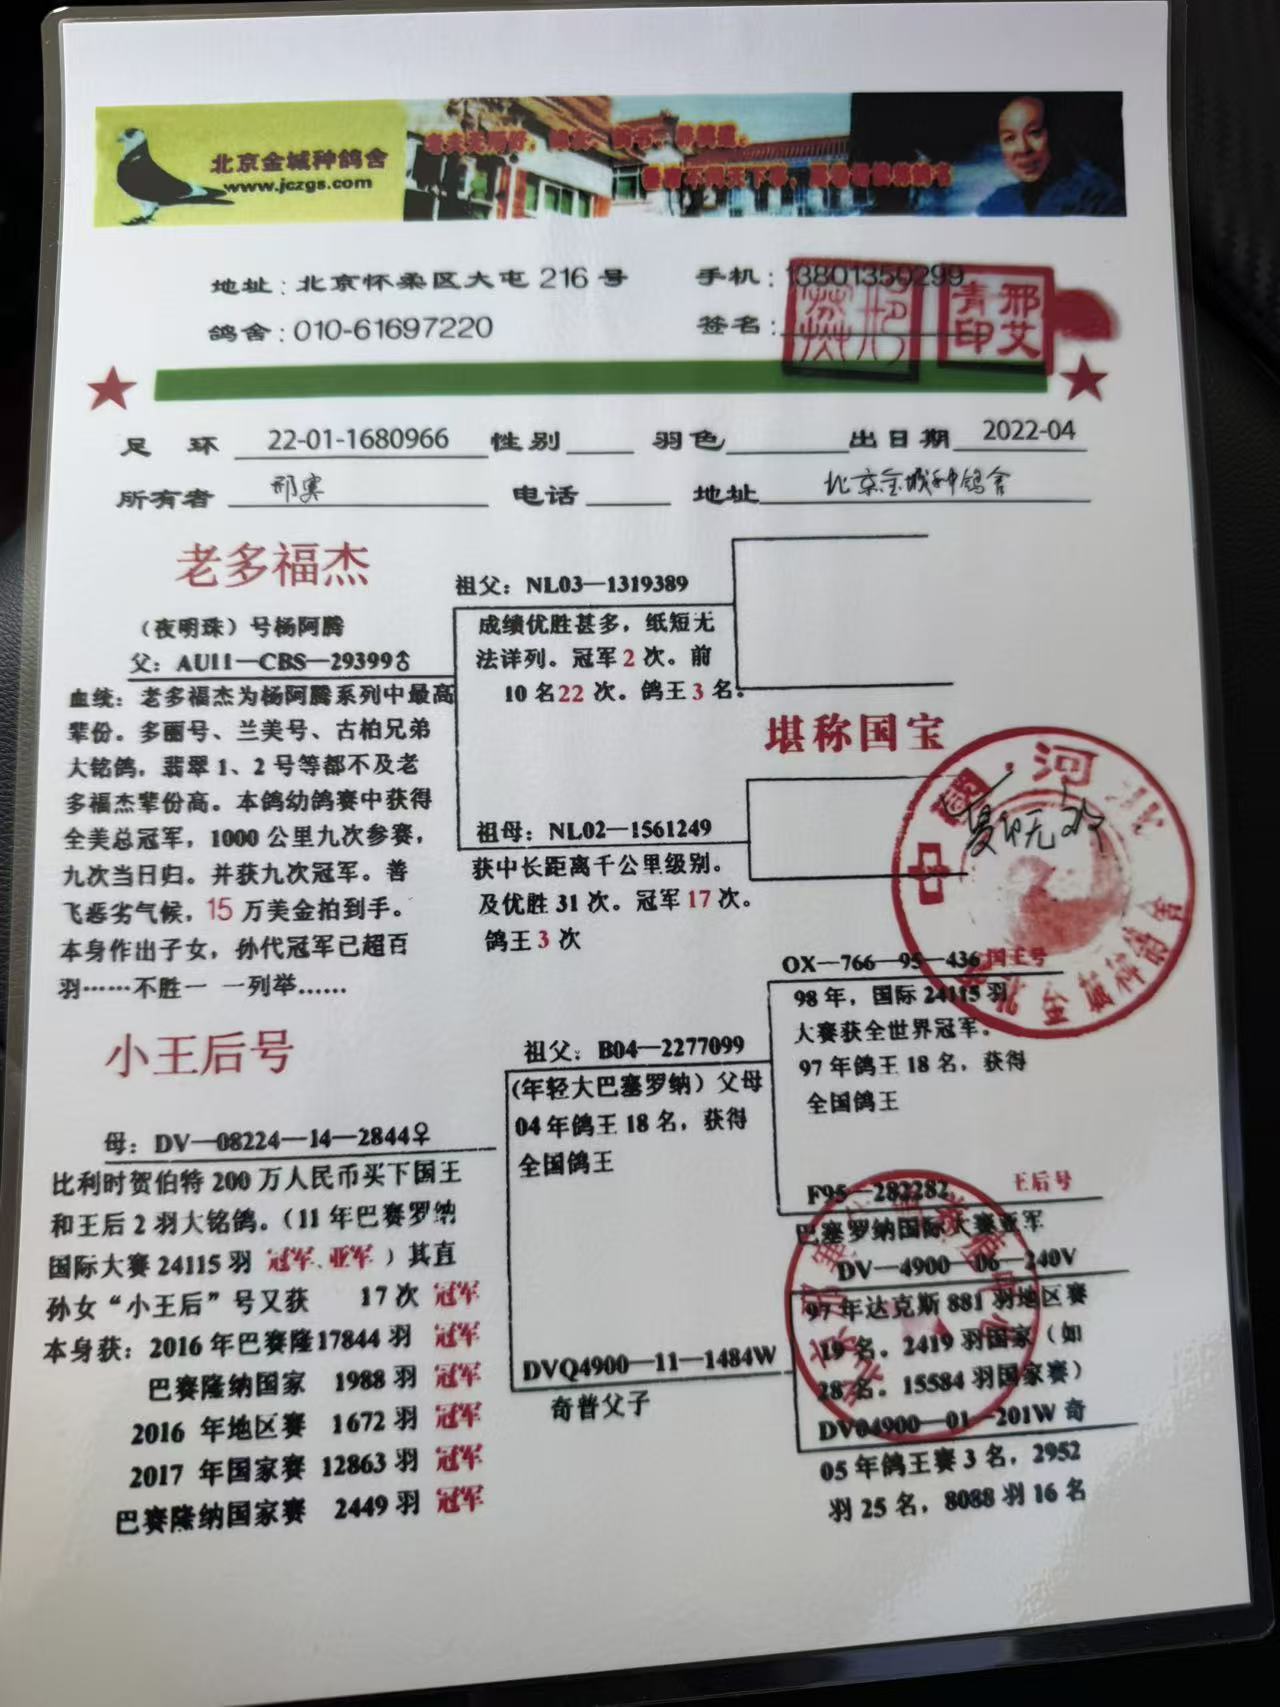 北京金城种鸽舍
www.jczgs.com
地址：北京怀柔区大屯 216 号
手机：13801350299
鸽舍：010-61697220
签名：
邢艾
青印
足 环 22-01-1680966 性别 羽色 出日期 2022-04
所有者 电话 地址 北京金城种鸽舍
老多福杰
（夜明珠）号杨阿腾
父：AU11—CBS—29399♂
血统：老多福杰为杨阿腾系列中最高
辈份。多丽号、兰美号、古柏兄弟
大铭鸽，翡翠 1、2 号等都不及老
多福杰辈份高。本鸽幼鸽赛中获得
全美总冠军，1000 公里九次参赛，
九次当日归。并获九次冠军。善
飞恶劣气候，15 万美金拍到手。
本身作出子女，孙代冠军已超百
羽……不胜一 一列举……
祖父：NL03—1319389
成绩优胜甚多，纸短无
法详列。冠军 2 次。前
10 名22 次。鸽王 3 名。
堪称国宝
祖母：NL02—1561249
获中长距离千公里级别。
及优胜 31 次。冠军 17 次。
鸽王 3 次
小王后号
母：DV—08224—14—2844♀
比利时贺伯特 200 万人民币买下国王
和王后 2 羽大铭鸽。（11 年巴赛罗纳
国际大赛 24115 羽 冠军、亚军 ）其直
孙女“小王后”号又获 17 次 冠军
本身获：2016 年巴赛隆17844 羽 冠军
巴赛隆纳国家 1988 羽 冠军
2016 年地区赛 1672 羽 冠军
2017 年国家赛 12863 羽 冠军
巴赛隆纳国家赛 2449 羽 冠军
祖父：B04—2277099
(年轻大巴塞罗纳）父母
04 年鸽王 18 名，获得
全国鸽王
DVQ4900—11—1484W
奇普父子
OX—766—95—436 国王号
98 年，国际 24115 羽
大赛获全世界冠军。
97 年鸽王 18 名，获得
全国鸽王
F95—282282 王后号
巴塞罗纳国际大赛亚军
DV—4900—06—240V
97 年达克斯 881 羽地区赛
19 名。2419 羽国家（如
28 名。15584 羽国家赛）
DV04900—01—201W 奇
05 年鸽王赛 3 名，2952
羽 25 名，8088 羽 16 名